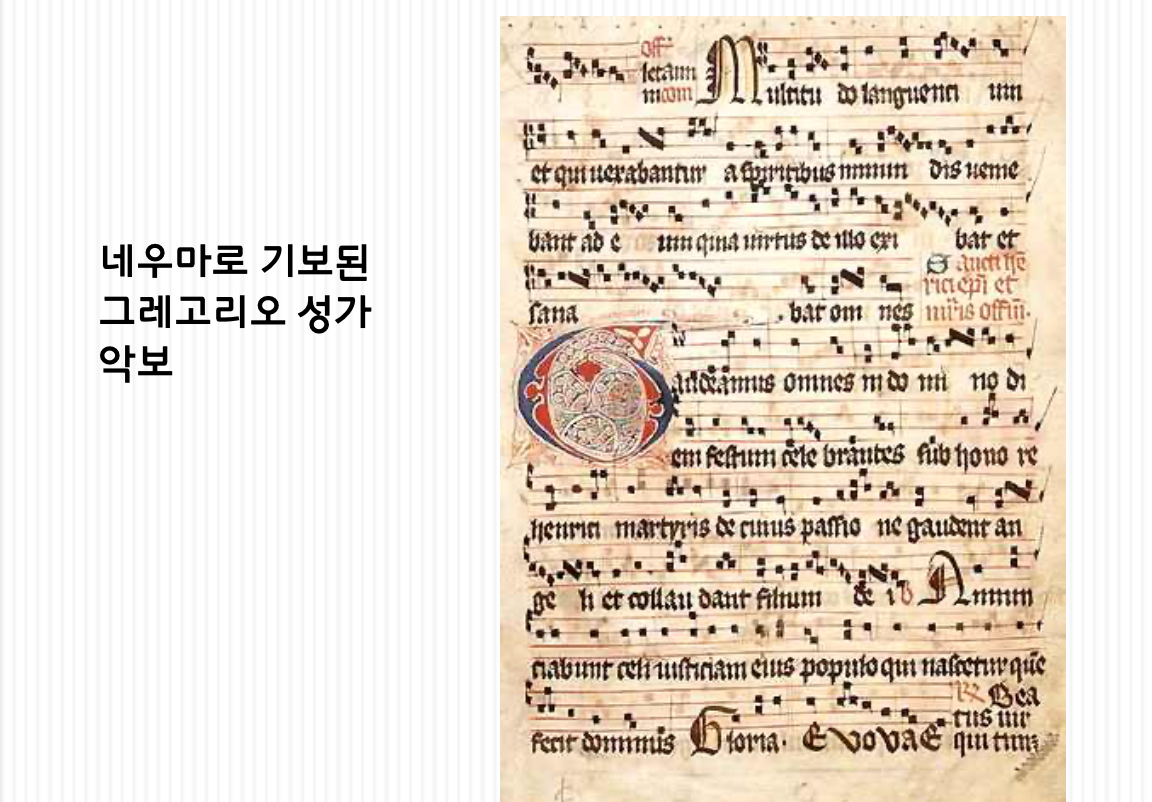 네우마로 기보된
그레고리오 성가
악보
off
letamini
Multitu do languenti um
et qui uexabantur a spiritibus inmun dis uenie
bant ad e um quia uirtus de illo exi bat et
sana bat om nes
Sancti
rici epi et
mris offm.
Gaudeamus omnes in do mi no di
em festum cele brantes sub hono re
henrici martyris de cuius passio ne gaudent an
ge li et collau dant filium de i
Annun
ciabunt celi iusticiam eius populo qui nascetur que
fecit dominus Gloria. EVOVAE
Bea
tus uir
qui tim